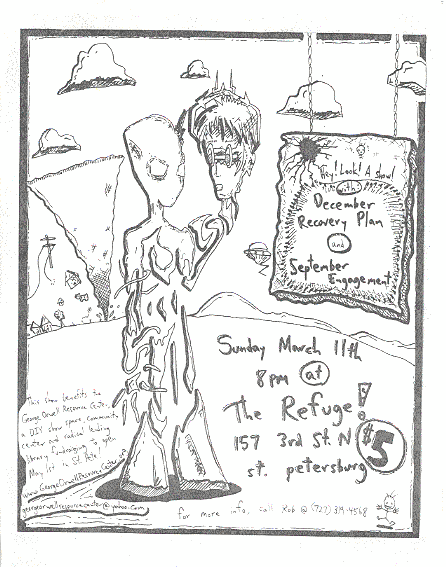 Hey! Look! A show!
with:
December
Recovery Plan
and
September
Engagement
Sunday March 11th
8pm at
The Refuge!
157 3rd St. N
st. petersburg
$5
This show benefits the
George Orwell Resource Center,
a DIY show space, community
center and radical lending
library fundraising to open
May 1st in St. Pete!
www.GeorgeOrwellResourceCenter.org
georgeorwellresourcecenter@yahoo.com
for more info, call Rob @ (727)